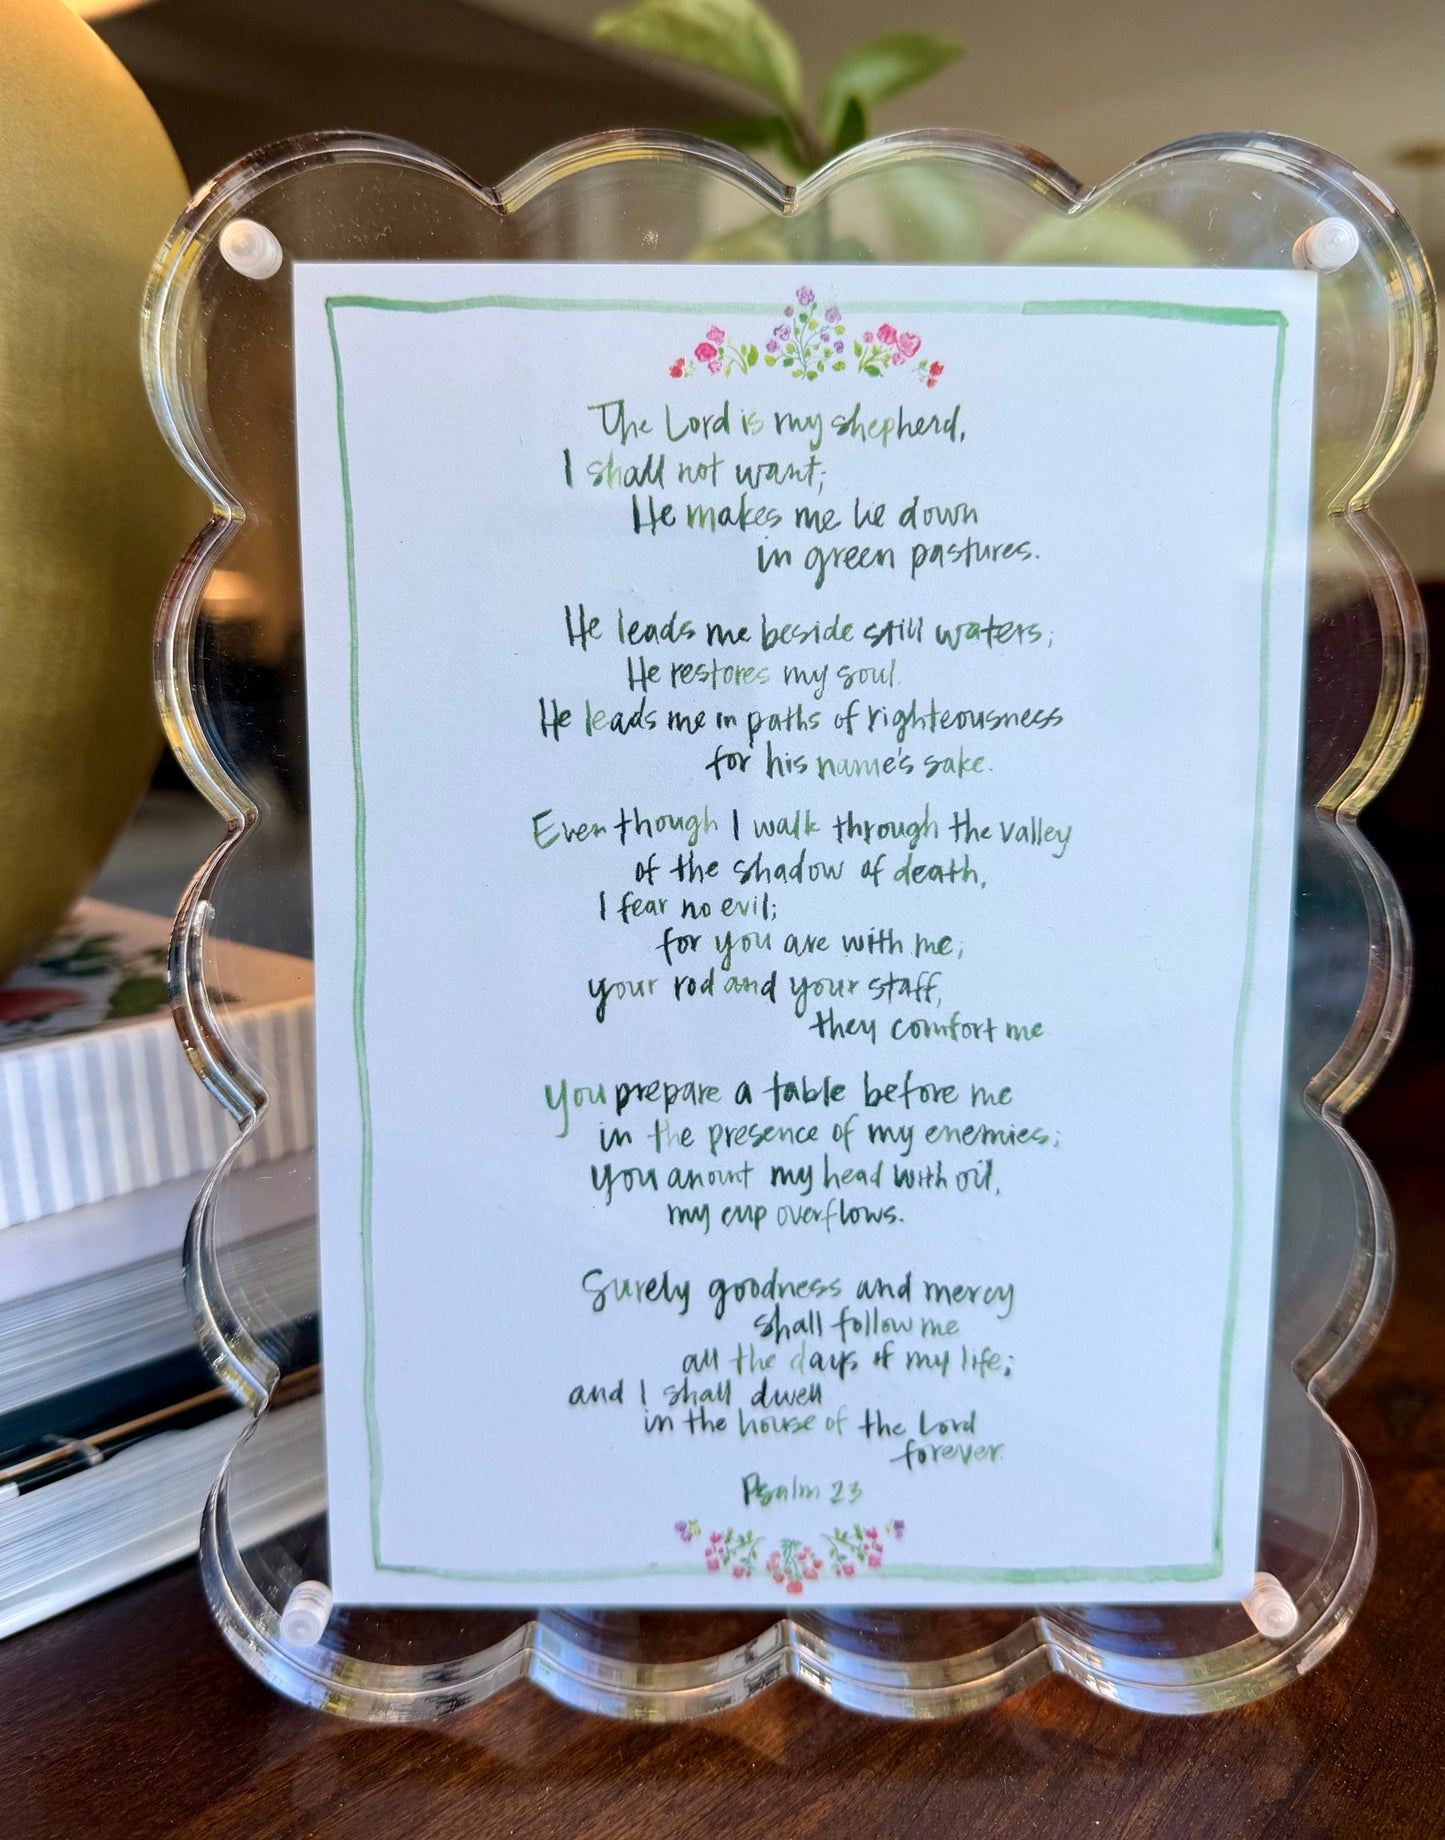 The Lord is my shepherd,
I shall not want;
He makes me lie down
in green pastures.
He leads me beside still waters;
He restores my soul.
He leads me in paths of righteousness
for his name's sake.
Even though I walk through the valley
of the shadow of death,
I fear no evil;
for you are with me;
your rod and your staff,
they comfort me
You prepare a table before me
in the presence of my enemies;
You anoint my head with oil,
my cup overflows.
Surely goodness and mercy
shall follow me
all the days of my life;
and I shall dwell
in the house of the Lord
forever.
Psalm 23